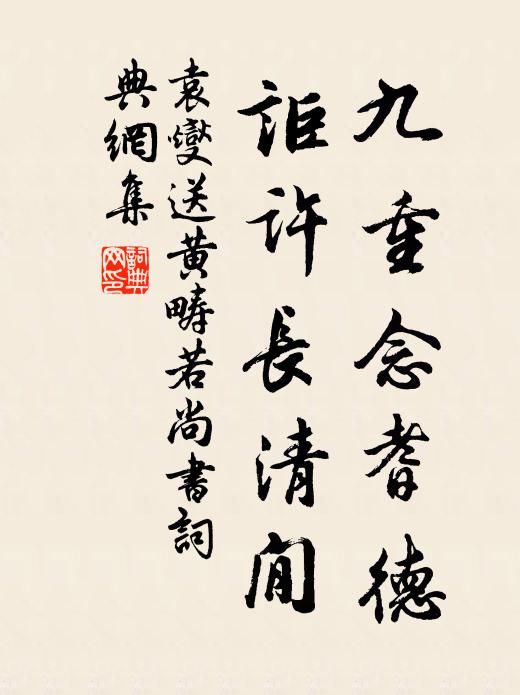 九重念耆德
詎許長清閒
袁燮送黃疇若尚書詞
典網集
詞典網印